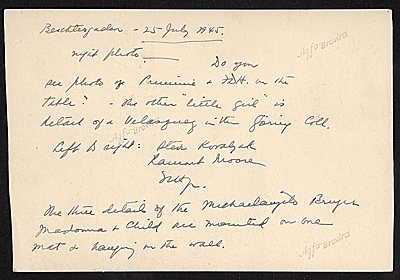 Berchtesgaden - 25 July 1945.
night photo. Do you
see photo of Prunnie & H.H. on the
table? - the other "little girl" is
detail of a Velasquez in the Göring Coll.
Left to right: Steve Kovalyak
Lamont Moore
The three details of the Michaelangelo Bruges
Madonna & Child are mounted on one
mat & hanging on the wall.
Agfa Brovira
Agfa Brovira
Agfa Brovira